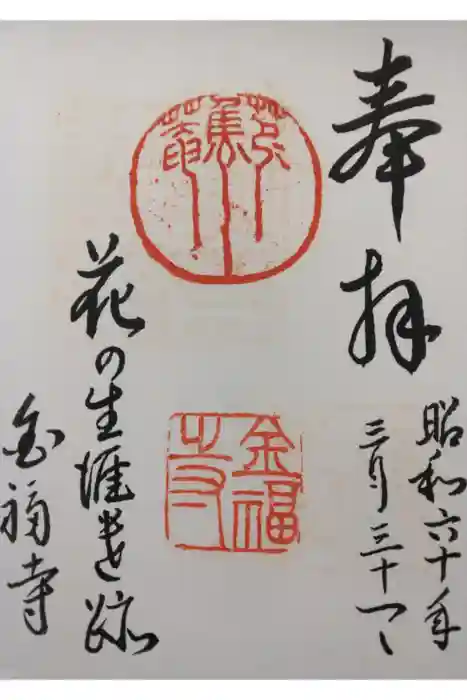 奉拝
昭和六十年
三月三十一日
芭蕉菴
金福寺
花の生涯遺跡
金福寺